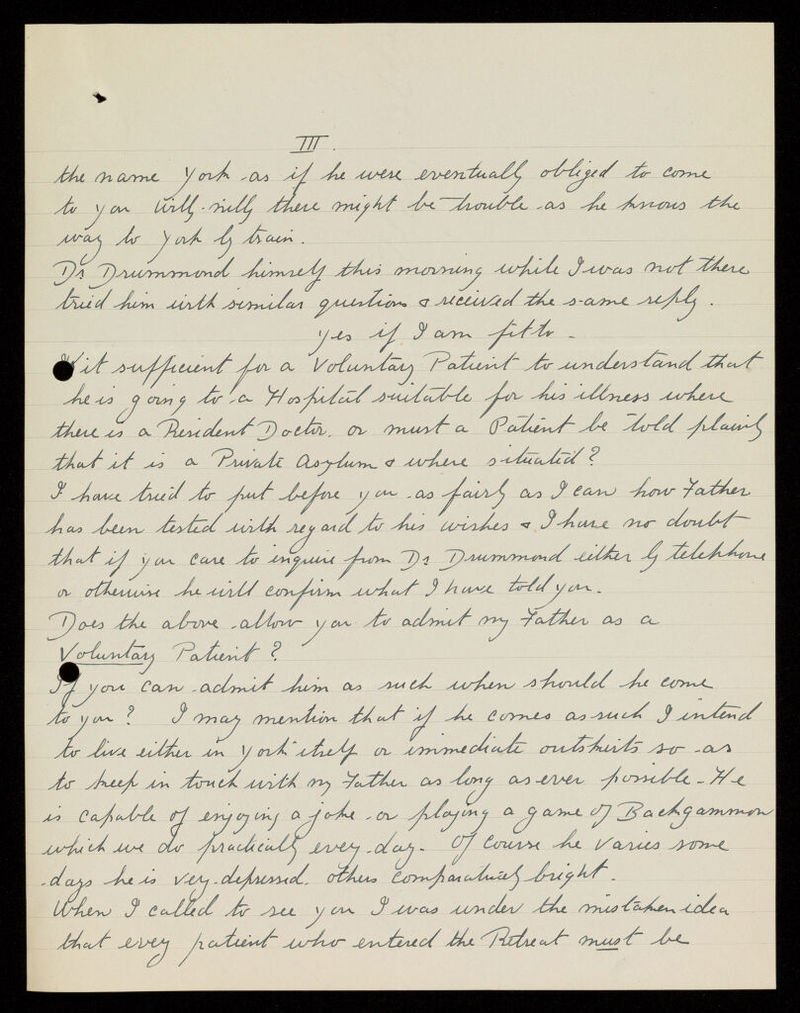 III.
the name York as if he were eventually obliged to come
to you willy-nilly there might be trouble as he knows the
way to York by train.
Dr Drummond himself this morning while I was not there
tried him with similar questions & received the same reply.
Yes if I am fit to -
Is it sufficient for a Voluntary Patient to understand that
he is going to a Hospital suitable for his illness where
there is a Resident Doctor. or must a Patient be told plainly
that it is a Private Asylum & where situated?
I have tried to put before you as fairly as I can how Father
has been tested with regard to his wishes & I have no doubt
that if you care to enquire from Dr Drummond either by telephone
or otherwise he will confirm what I have told you.
Does the above allow you to admit my Father as a
Voluntary Patient?
If you can admit him as such when should he come
to you? I may mention that if he comes as such I intend
to live either in York itself or immediate outskirts so as
to keep in touch with my Father as long as ever possible - He
is capable of enjoying a joke or playing a game of Backgammon
which we do practically every day. Of course he varies some
days he is very depressed. others comparatively bright.
When I called to see you I was under the mistaken idea
that every patient who entered the Retreat must be